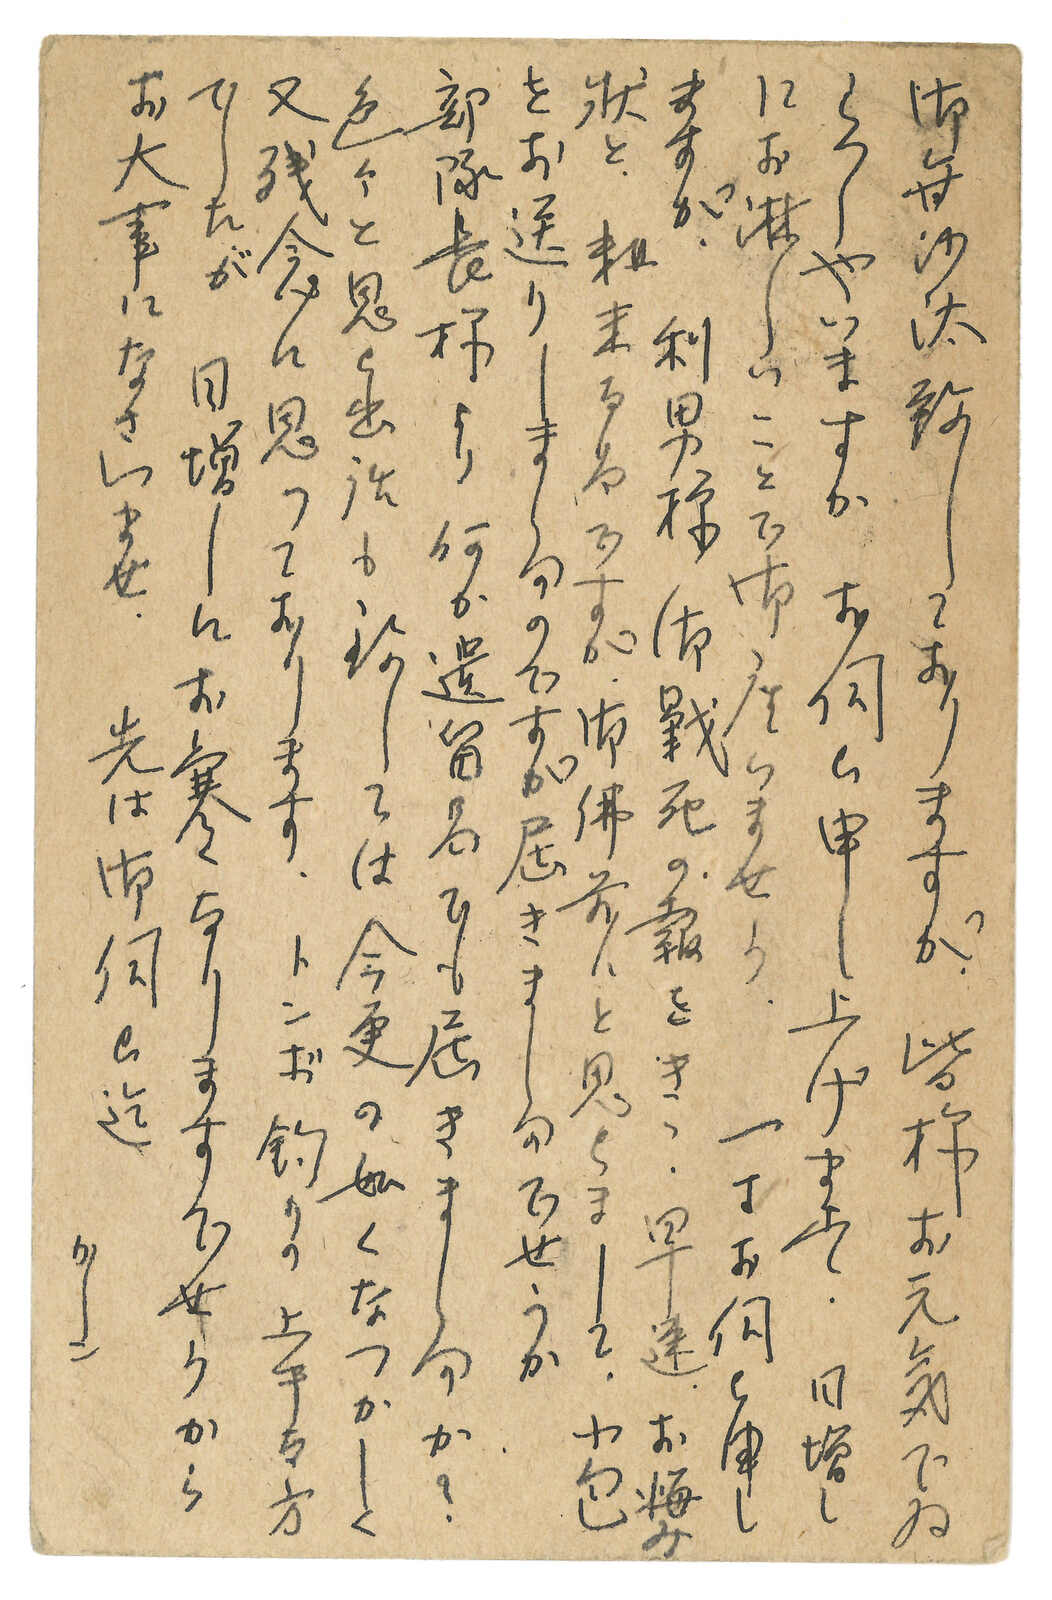 御無沙汰致しておりますが、皆様お元気でゐ
らっしやいますか お伺ひ申し上げます。日増し
にお淋しいことで御座いませう。一寸お伺ひ申し
ますが、利男様御戦死の報をきき、早速、お悔み
状と、粗末な品ですが、御佛前にと思ひまして、小包
をお送りしましたのですが届きましたでせうか
部隊長様より何か遺留品でも届きましたか?
色々と思ひ出話も致しては今更の如くなつかしく
又残念に思つております。トンボ釣りの上手な方
でしたが 日増しにお寒くなりますでせうから
お大事になさいませ。 先は御伺ひ迄
かしこ